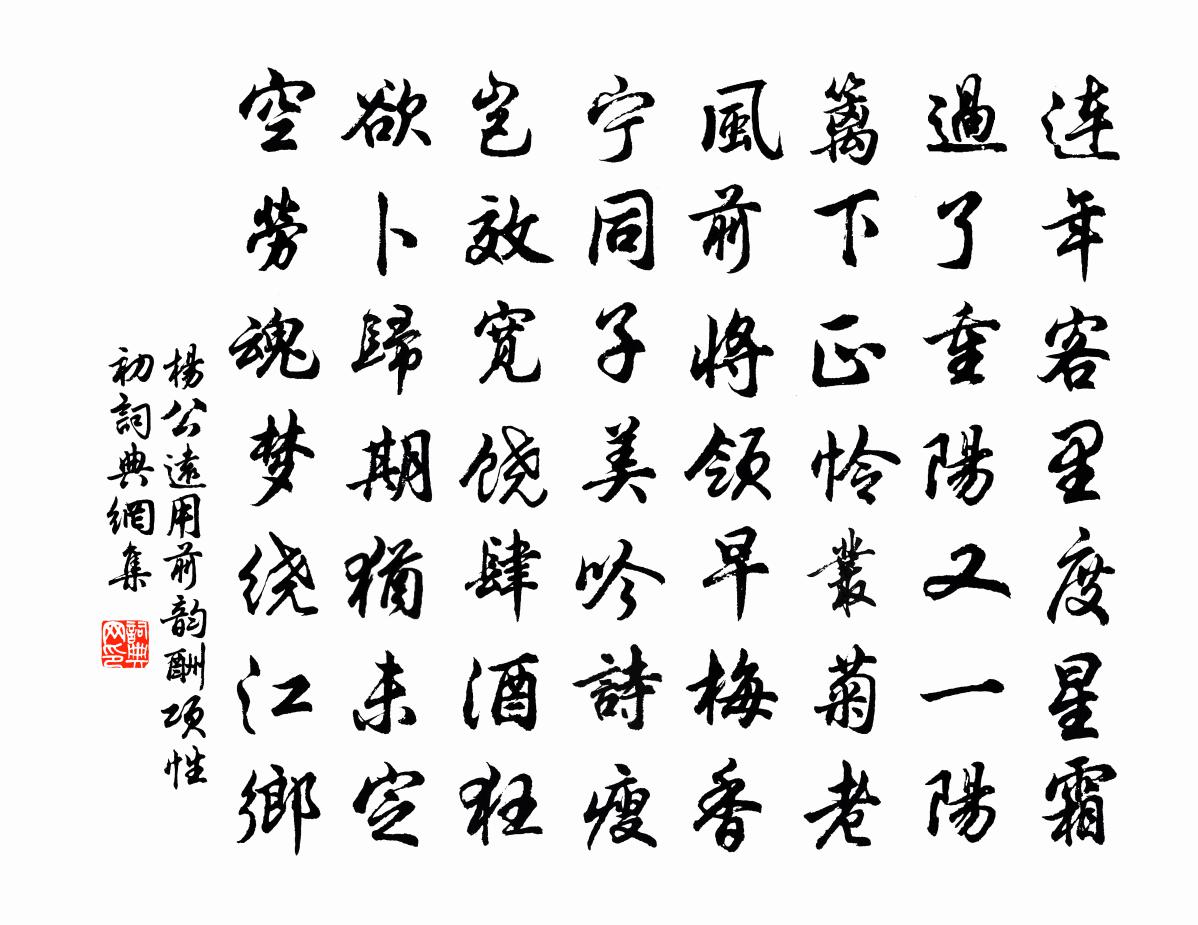 連年客里度星霜
過了重陽又一陽
籬下正怜叢菊老
風前將領早梅香
宁同子美吟詩瘦
豈效寬饶肆酒狂
欲卜歸期猶未定
空勞魂梦绕江鄉
楊公遠用前韵酬项性
初詞典網集
詞典
网印